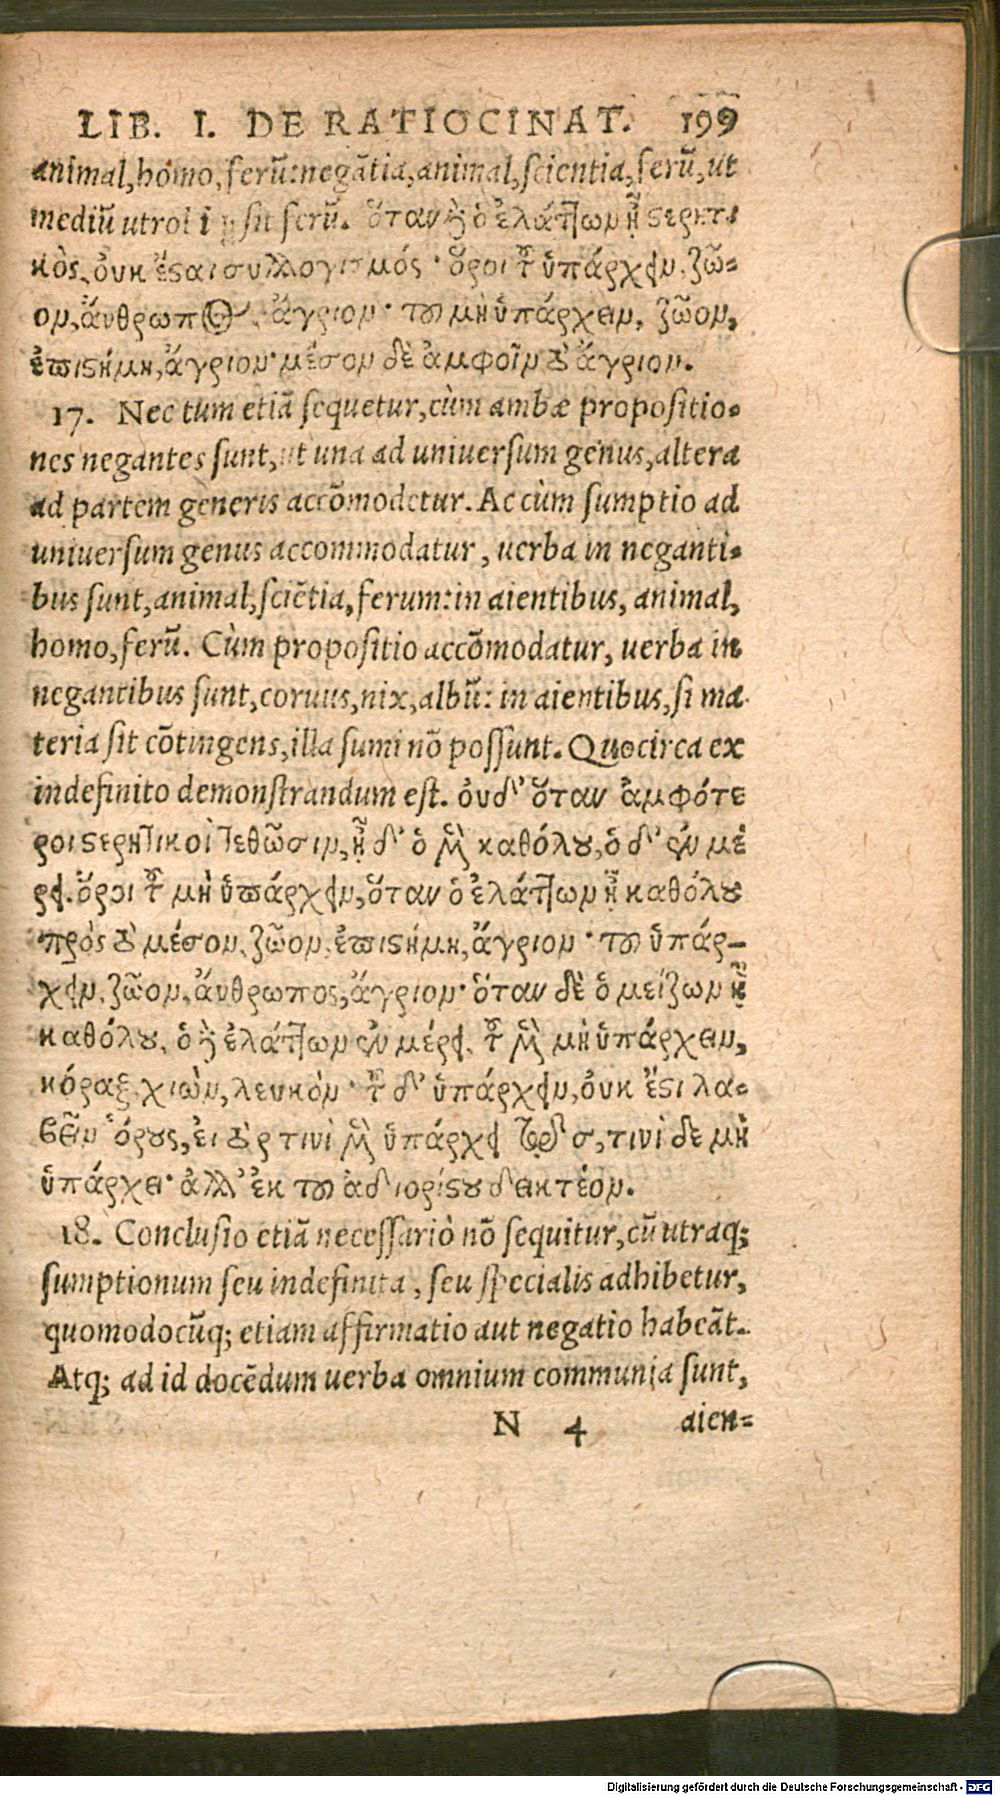 LIB. I. DE RATIOCINAT. 199
animal, homo, ferū: negātia, animal, scientia, ferū, ut
mediū sit ferū. ὅταν ὁ ἐλάττων ᾖ στερητι
κὸς, οὐκ ἔσται συλλογισμός· ὅροι τοῦ ὑπάρχειν, ζῶ-
ον, ἄνθρωπος, ἄγριον· τοῦ μὴ ὑπάρχειν, ζῶον,
ἐπιστήμη, ἄγριον· μέσον δὲ ἀμφοῖν τὸ ἄγριον.
17. Nec tum etiā sequetur, cùm ambæ propositio-
nes negantes sunt, ut una ad uniuersum genus, altera
ad partem generis accōmodetur. Ac cùm sumptio ad
uniuersum genus accommodatur, uerba in neganti-
bus sunt, animal, sciētia, ferum: in aientibus, animal,
homo, ferū. Cùm propositio accōmodatur, uerba in
negantibus sunt, coruus, nix, albū: in aientibus, si ma
teria sit cōtingens, illa sumi nō possunt. Quocirca ex
indefinito demonstrandum est. οὐδ' ὅταν ἀμφότε
ροι στερητικοὶ τεθῶσιν, ᾖ δ' ὁ μὲν καθόλου, ὁ δ' ἐν μέ
ρει. ὅροι τοῦ μὴ ὑπάρχειν, ὅταν ὁ ἐλάττων ᾖ καθόλου
πρὸς τὸ μέσον, ζῶον, ἐπιστήμη, ἄγριον· τοῦ ὑπάρ-
χειν, ζῶον, ἄνθρωπος, ἄγριον· ὅταν δὲ ὁ μείζων ᾖ
καθόλου, ὁ δὲ ἐλάττων ἐν μέρει, τοῦ μὲν μὴ ὑπάρχειν,
κόραξ, χιὼν, λευκὸν· τοῦ δ' ὑπάρχειν, οὐκ ἔστι λα-
βεῖν ὅρους, εἰ τὸ ρ τινὶ μὲν ὑπάρχει τῷ σ, τινὶ δε μὴ
ὑπάρχει· ἀλλ' ἐκ τοῦ ἀδιορίστου δεικτέον.
18. Conclusio etiā necessariò nō sequitur, cū utraq;
sumptionum seu indefinita, seu specialis adhibetur,
quomodocūq; etiam affirmatio aut negatio habeāt.
Atq; ad id docēdum uerba omnium communia sunt,
N 4 aien-
Digitalisierung gefördert durch die Deutsche Forschungsgemeinschaft - DFG